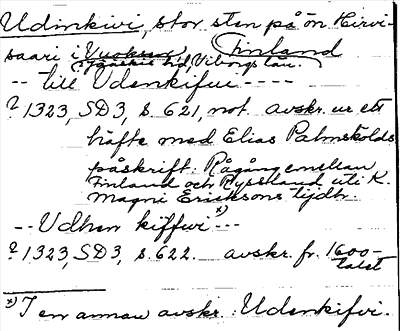 Udinkivi, stor sten på ön Hirvi-
saari i Vuoksen, Finland
Viborgs län.
-- till Udenkifui ----
? 1323, SD3, s. 621, not. avskr. ur ett
häfte med Elias Palmskölds
påskrift: Rågång emellan
Finland och Ryssland uti K.
Magni Ericksons tijdh.
-- Udhen kiffwi x) ---
? 1323, SD3, s. 622. avskr. fr. 1600-
talet
x) I en annan avskr.: Udenkifvi.